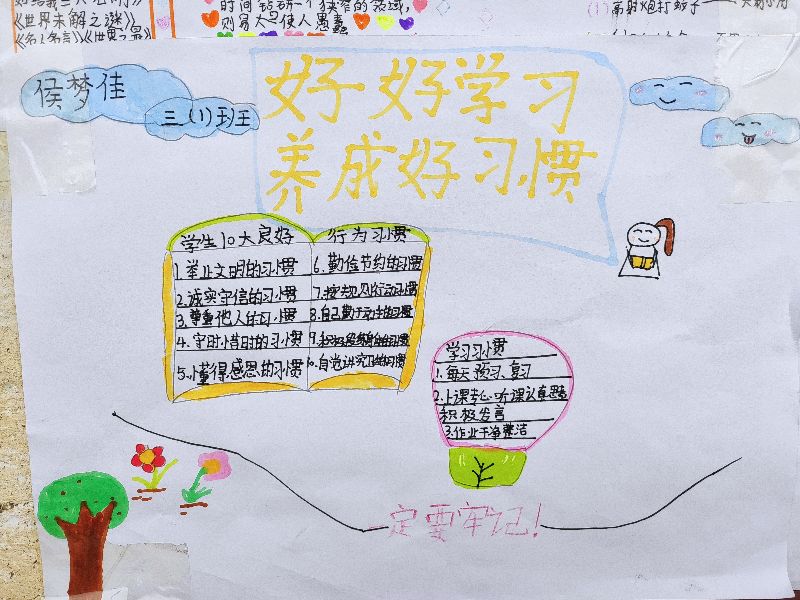 《世界未解之谜》
《名人名言》《世界之最》
时间钻研一个狭窄的领域，
则易太早使人愚蠢
侯梦佳
三(1)班
好好学习
养成好习惯
学生10大良好
行为习惯
1.举止文明的习惯
2.诚实守信的习惯
3.尊重他人的习惯
4.守时惜时的习惯
5.懂得感恩的习惯
6.勤俭节约的习惯
7.按规则行动习惯
8.自己勤于动手的习惯
9.积极锻炼的习惯
10.自觉讲究卫生的习惯
学习习惯
1.每天预习、复习
2.上课专心听课认真思考
积极发言
3.作业干净整洁
一定要牢记！